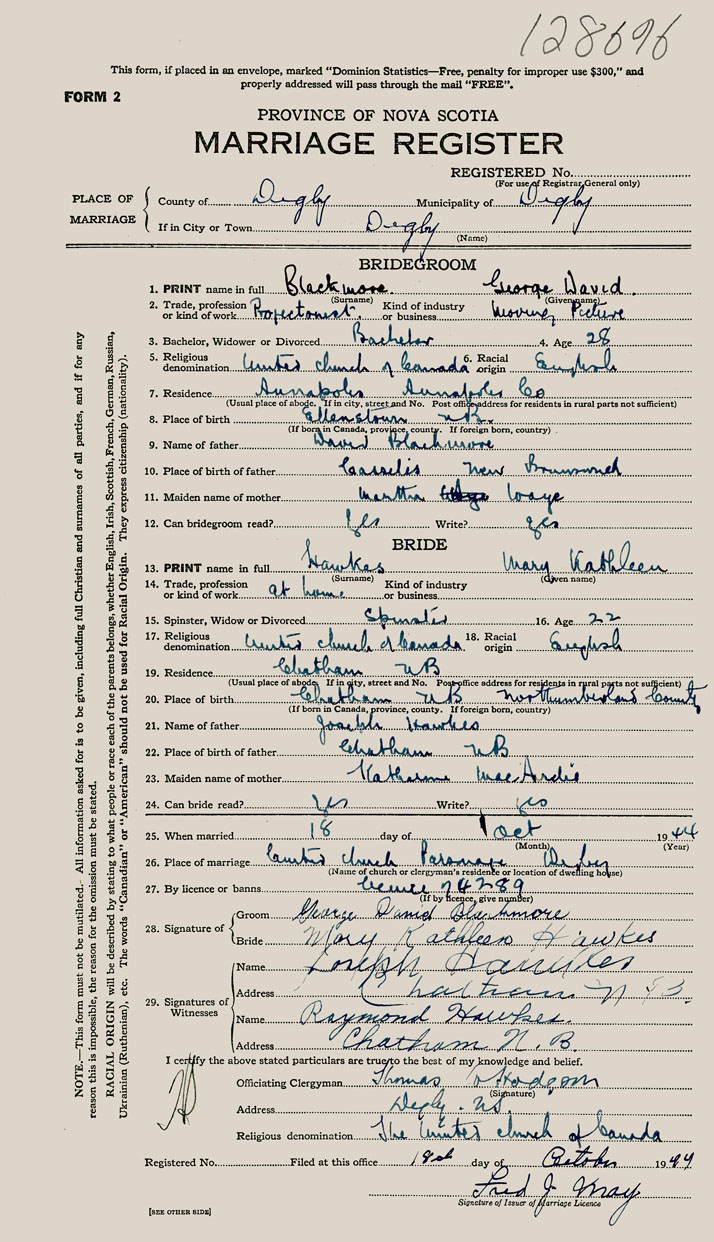 128696
This form, if placed in an envelope, marked "Dominion Statistics—Free, penalty for improper use $300," and
properly addressed will pass through the mail "FREE".
FORM 2
PROVINCE OF NOVA SCOTIA
MARRIAGE REGISTER
REGISTERED No.
(For use of Registrar General only)
PLACE OF MARRIAGE
County of Digby Municipality of Digby
If in City or Town Digby
(Name)
BRIDEGROOM
1. PRINT name in full Blackmore George David
(Surname) (Given name)
2. Trade, profession or kind of work Projectionist. Kind of industry or business Moving Picture
3. Bachelor, Widower or Divorced Bachelor 4. Age 28
5. Religious denomination United church of Canada 6. Racial origin English
7. Residence Annapolis Annapolis Co
(Usual place of abode. If in city, street and No. Post office address for residents in rural parts not sufficient)
8. Place of birth N.B.
(If born in Canada, province, county. If foreign born, country)
9. Name of father David Blackmore
10. Place of birth of father Cassilis New Brunswick
11. Maiden name of mother Martha
12. Can bridegroom read? Yes Write? yes
BRIDE
13. PRINT name in full Hawkes Mary Kathleen
(Surname) (Given name)
14. Trade, profession or kind of work at home Kind of industry or business
15. Spinster, Widow or Divorced Spinster 16. Age 22
17. Religious denomination United church of Canada 18. Racial origin English
19. Residence Chatham NB
(Usual place of abode. If in city, street and No. Post office address for residents in rural parts not sufficient)
20. Place of birth Chatham NB Northumberland County
(If born in Canada, province, county. If foreign born, country)
21. Name of father Joseph Hawkes
22. Place of birth of father Chatham NB
23. Maiden name of mother Katharine MacArdie
24. Can bride read? Yes Write? yes
25. When married 18 day of Oct 1944
(Month) (Year)
26. Place of marriage United church Parsonage Digby
(Name of church or clergyman's residence or location of dwelling house)
27. By licence or banns licence 74289
(If by licence, give number)
28. Signature of
Groom George David Blackmore
Bride Mary Kathleen Hawkes
29. Signatures of Witnesses
Name Joseph Hawkes
Address Chatham N.B.
Name Raymond Hawkes.
Address Chatham N. B.
I certify the above stated particulars are true to the best of my knowledge and belief.
Officiating Clergyman Thomas Hodgson
(Signature)
Address Digby. N.S.
Religious denomination The United church of Canada
Registered No. Filed at this office 18th day of October 1944
Fred J. May
Signature of Issuer of Marriage Licence
[SEE OTHER SIDE]
NOTE.—This form must not be mutilated. All information asked for is to be given, including full Christian and surnames of all parties, and if for any
reason this is impossible, the reason for the omission must be stated.
RACIAL ORIGIN will be described by stating to what people or race each of the parents belongs, whether English, Irish, Scottish, French, German, Russian,
Ukrainian (Ruthenian), etc. The words "Canadian" or "American" should not be used for Racial Origin. They express citizenship (nationality).